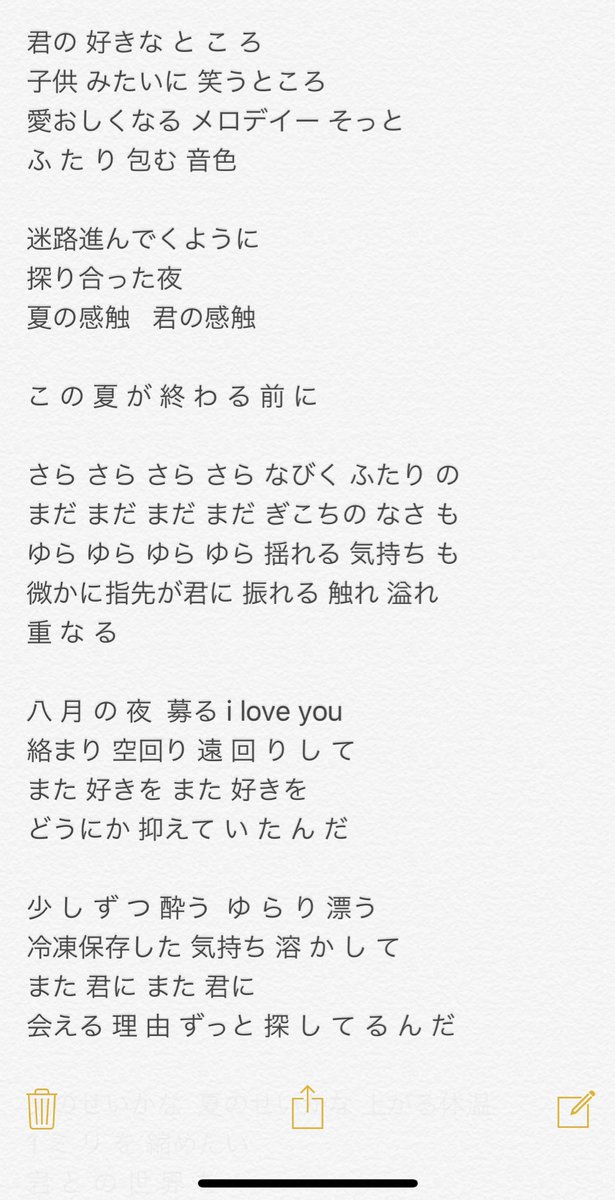 君の 好きな と こ ろ
子供 みたいに 笑うところ
愛おしくなる メロデイー そっと
ふ た り 包む 音色
迷路進んでくように
探り合った夜
夏の感触　君の感触
こ の 夏 が 終 わ る 前 に
さら さら さら さら なびく ふたり の
まだ まだ まだ まだ ぎこちの なさ も
ゆら ゆら ゆら ゆら 揺れる 気持ち も
微かに指先が君に 振れる 触れ 溢れ
重 な る
八 月 の 夜  募る i love you
絡まり 空回り 遠 回 り し て
また 好きを また 好きを
どうにか 抑えて い た ん だ
少 し ず つ 酔う  ゆ ら り 漂う
冷凍保存した 気持ち 溶 か し て
また 君に また 君に
会える 理 由 ずっと 探 し て る ん だ
縮めたい
君 と の 世 界